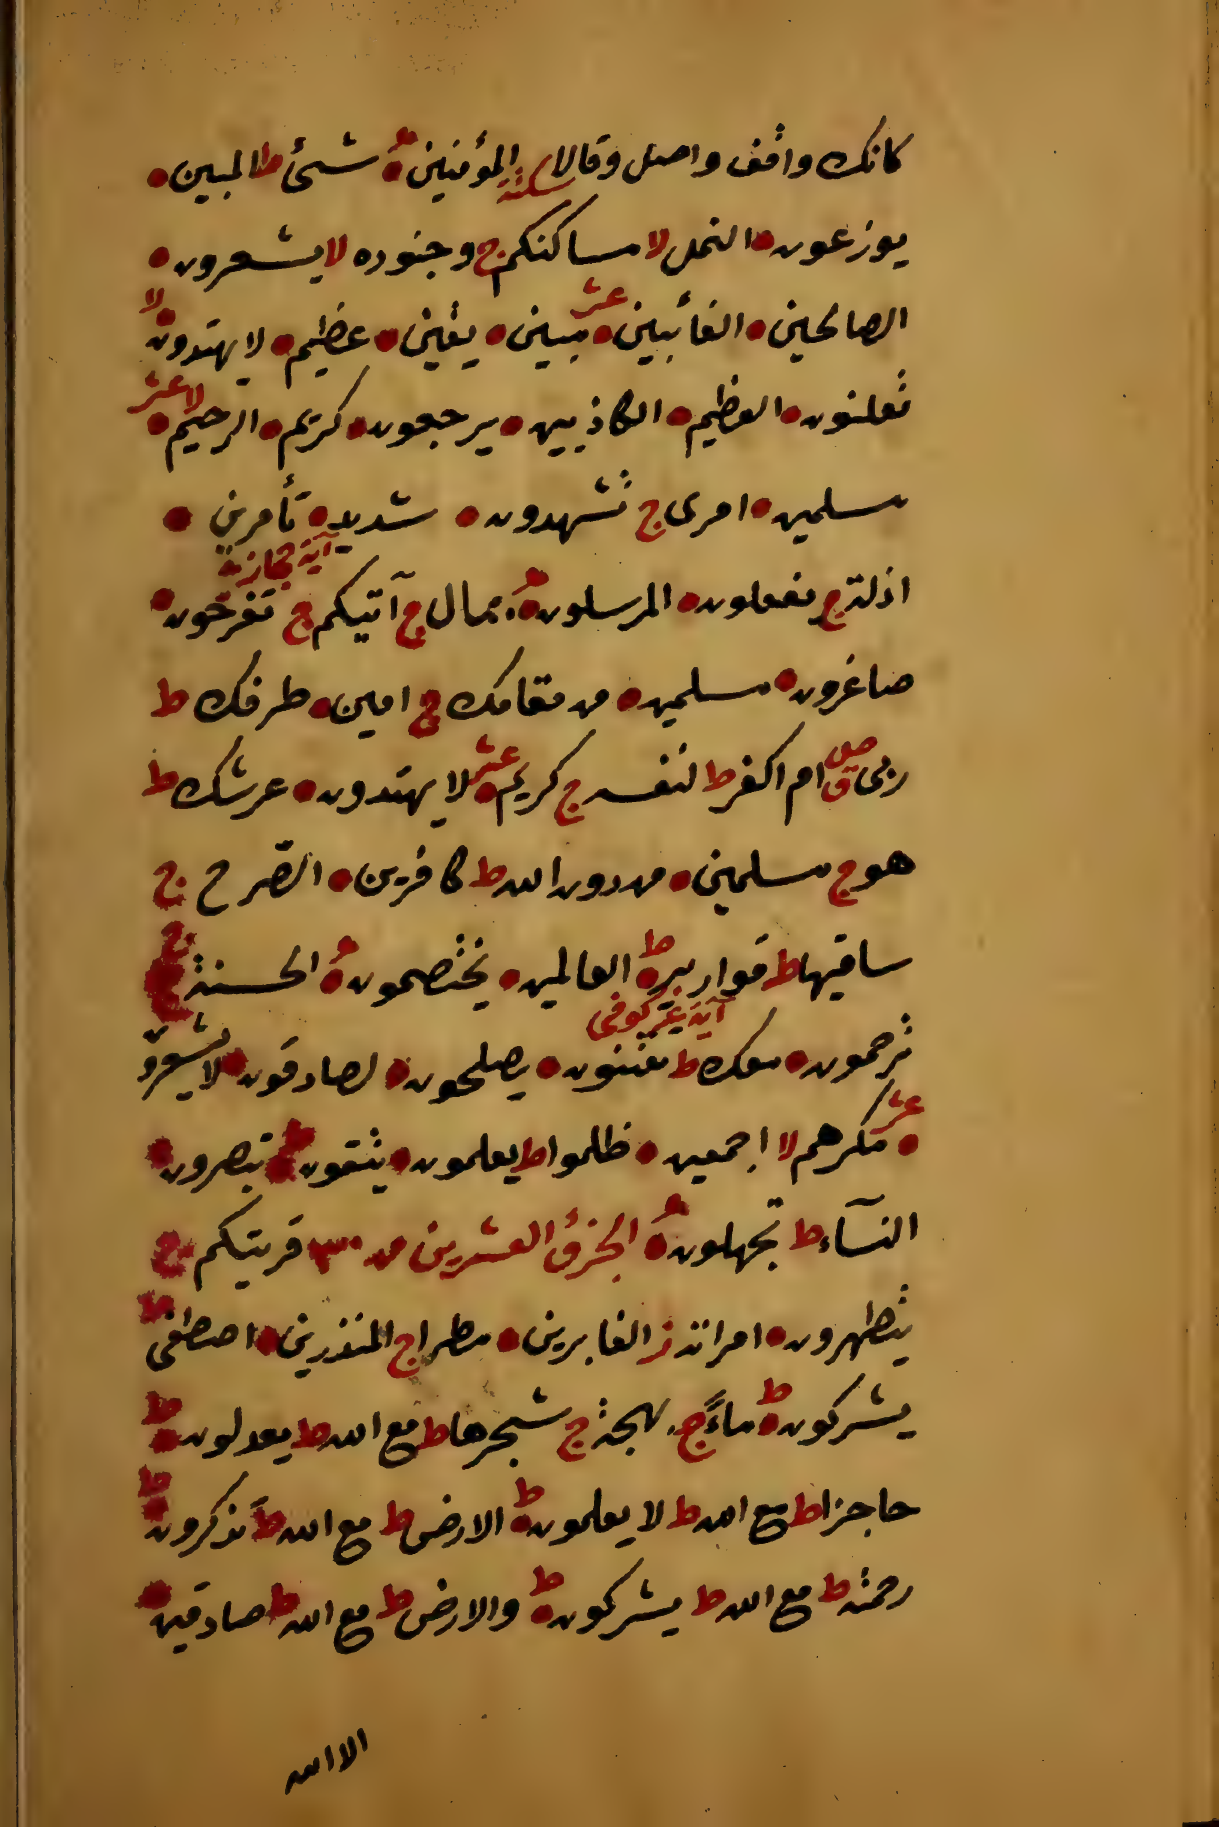 كانك واقف واصل وقالا سكتة المؤمنين ه شئ ط المبين ●
يوزعون ● النمل لا مساكنكم ج وجنوده لا يشعرون ●
الصالحين ● الغائبين ● عشر مبين ● يقين ● عظيم ● لا يهتدون ● لا
تعلنون ● العظيم ● الكاذبين ● يرجعون ● كريم ● الرحيم ● لا عشر
مسلمين ● امرى ج تشهدون ● شديد ● تأمرين ●
اذلة ج يفعلون ● المرسلون ه بمال ج آتيكم ج تفرحون ● آية حجازية
صاغرون ● مسلمين ● من مقامك ج امين ● طرفك ط
ربى ق صلى ام اكفر ط لنفسه ج كريم ● عشر لا يهتدون ● عرشك ط
هو ج مسلمين ● من دون الله ط كافرين ● الصرح ج
ساقيها ط قوارير ط العالمين ● يختصمون ه الحسنة ج
ترحمون ● معك ط تفتنون ● يصلحون ● لصادقون ● لا يشعرون
● عشر مكرهم لا اجمعين ● ظلموا ط يعلمون ● يتقون ● ط تبصرون ●
النسآء ط تجهلون ه الجزؤ العشرين من ٣٠ قريتكم ج
يتطهرون ● امراته ز الغابرين ● مطرا ج المنذرين ● اصطفى ط
يشركون ● ط ماءً ج بهجة ج شجرها ط مع الله ط يعدلون ● ط
حاجزا ط مع الله ط لا يعلمون ● ط الارض ط مع الله ط تذكرون ● ط
رحمته ط مع الله ط يشركون ● ط والارض ط مع الله ط صادقين ●
الا الله